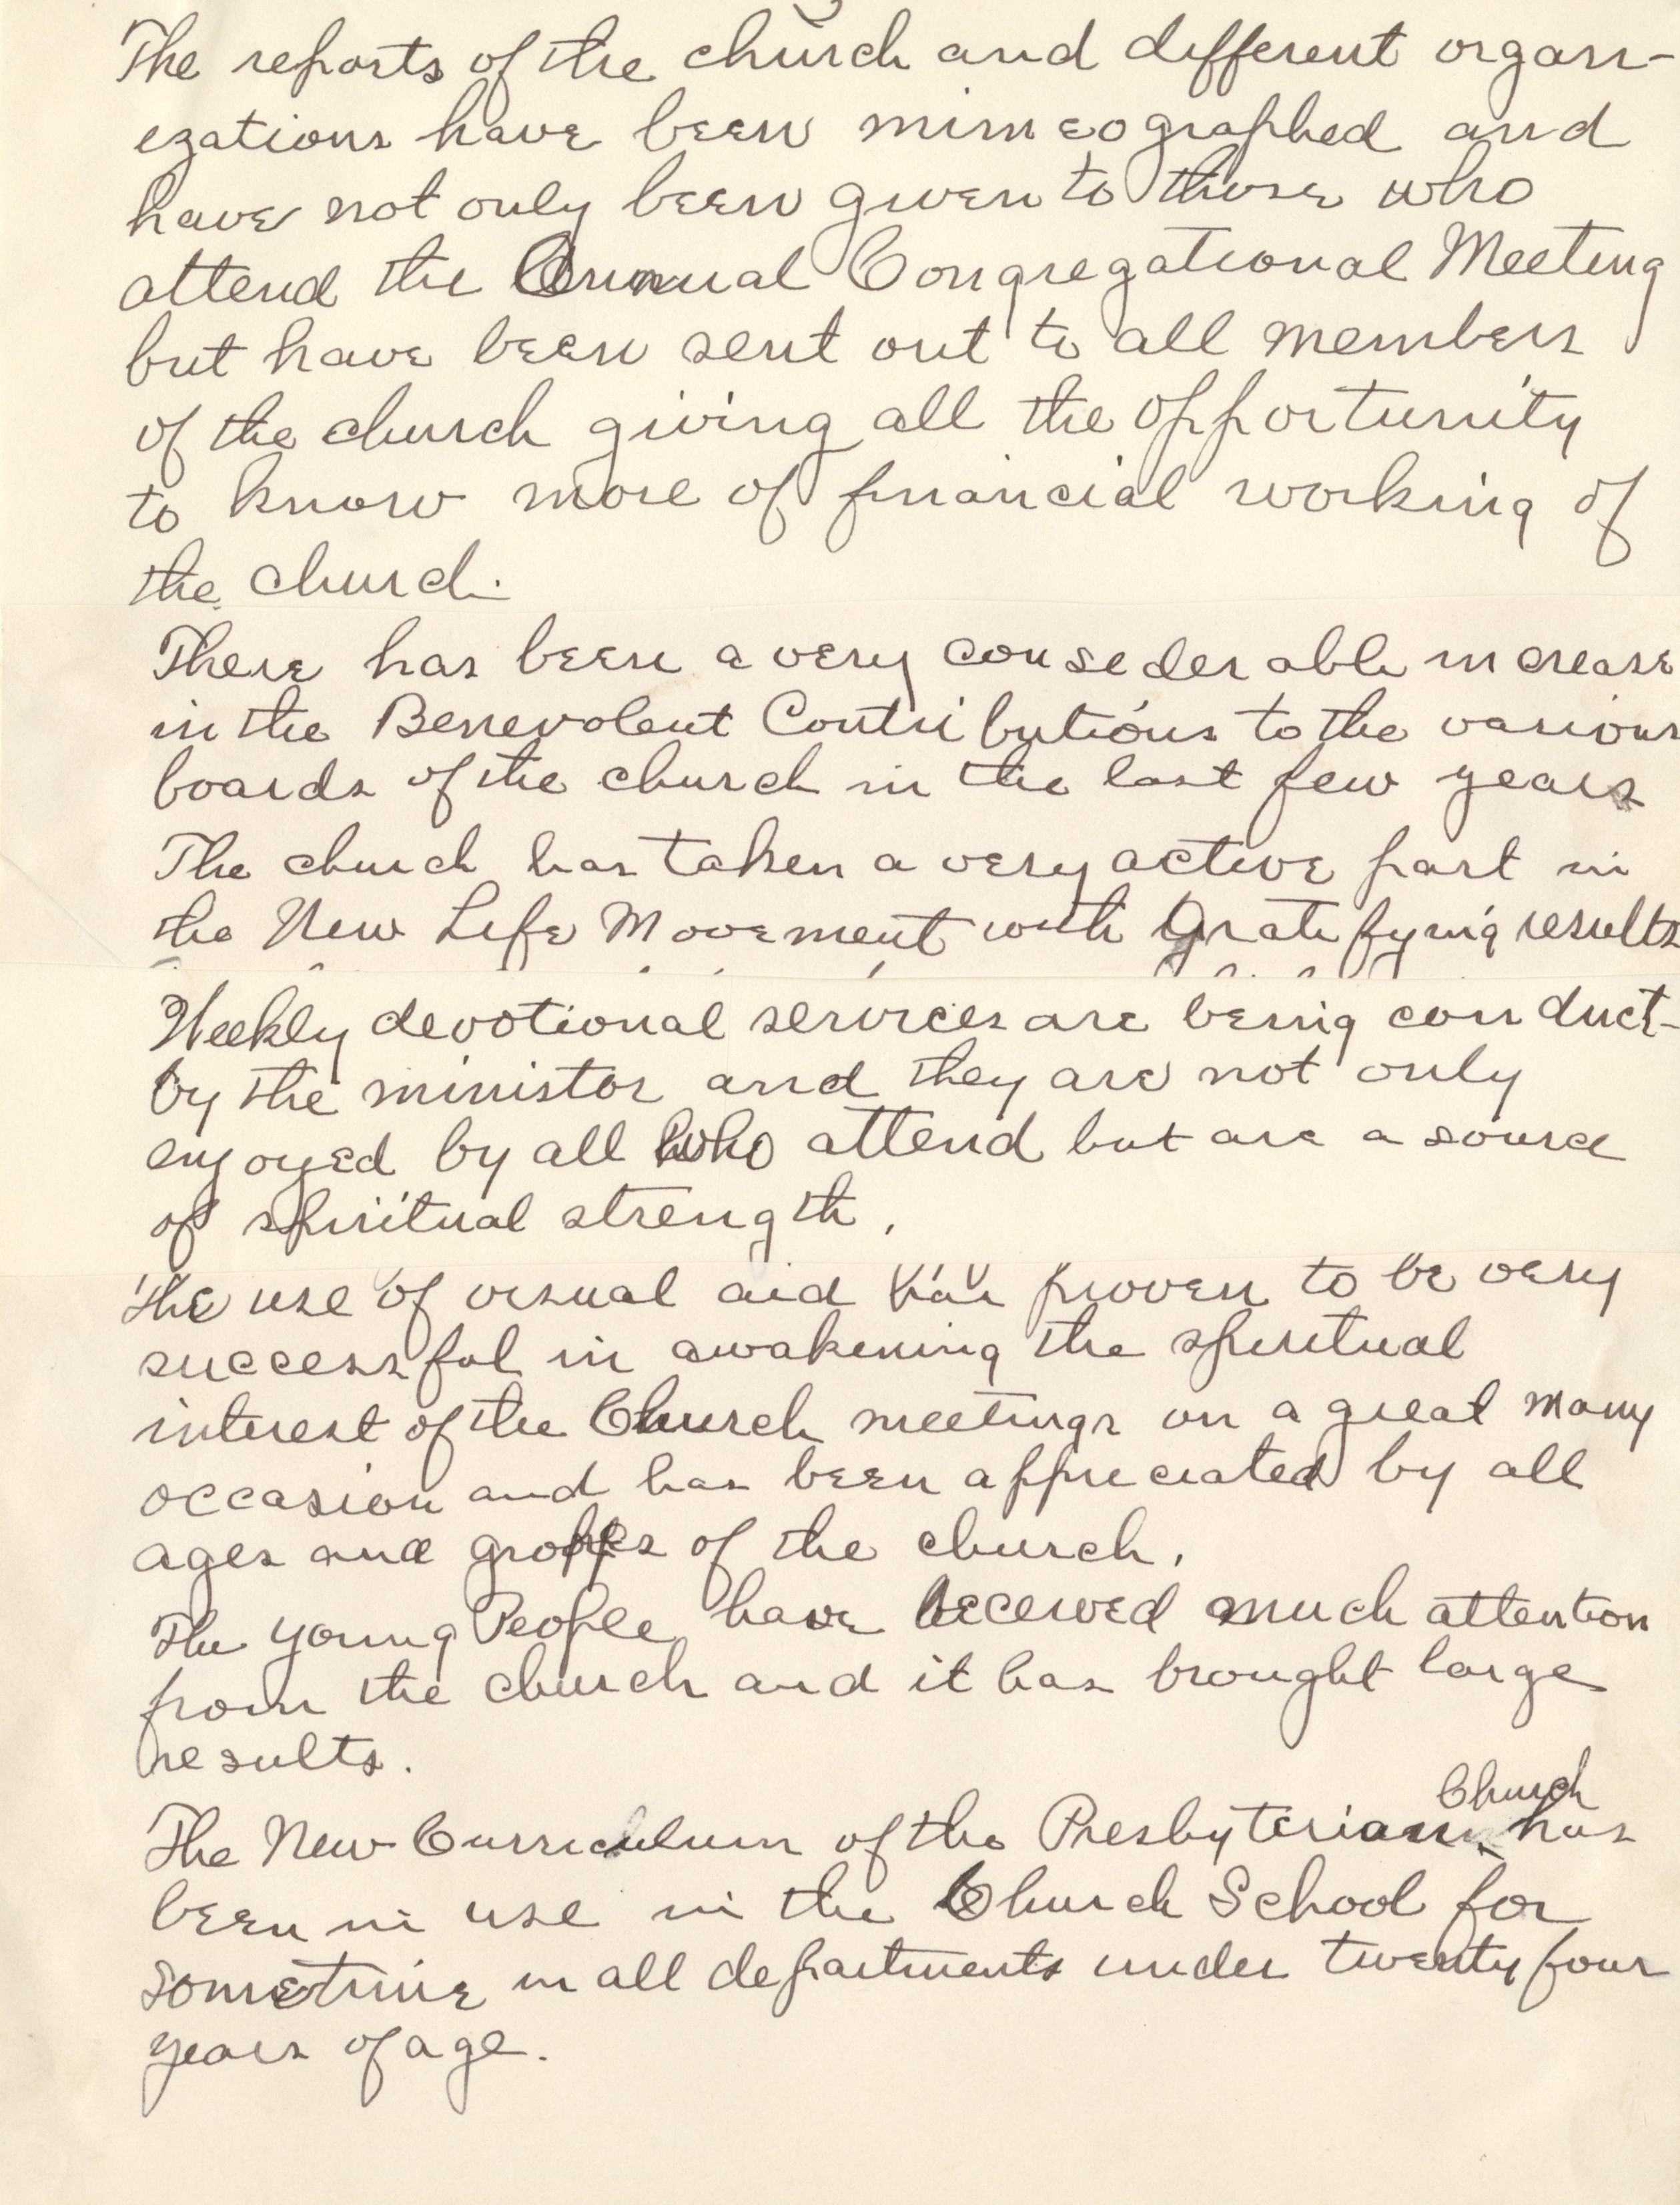 The reports of the church and different organ-
ezations have been mimeographed and
have not only been given to those who
attend the Annual Congregational Meeting
but have been sent out to all members
of the church giving all the opportunity
to know more of financial working of
the church.
There has been a very consederable increase
in the Benevolent Contributions to the various
boards of the church in the last few years
The church has taken a very active part in
the New Life Movement with gratifying results
Weekly devotional services are being conduct-
by the minister and they are not only
enjoyed by all who attend but are a source
of spiritual strength.
The use of visual aid has proven to be very
successful in awakening the spiritual
interest of the Church meetings on a great many
occasion and has been appreciated by all
ages and groups of the church.
The young People have received much attention
from the church and it has brought large
results.
The New Curriculum of the Presbyterian Church has
been in use in the Church School for
sometime in all departments under twenty four
years of age.